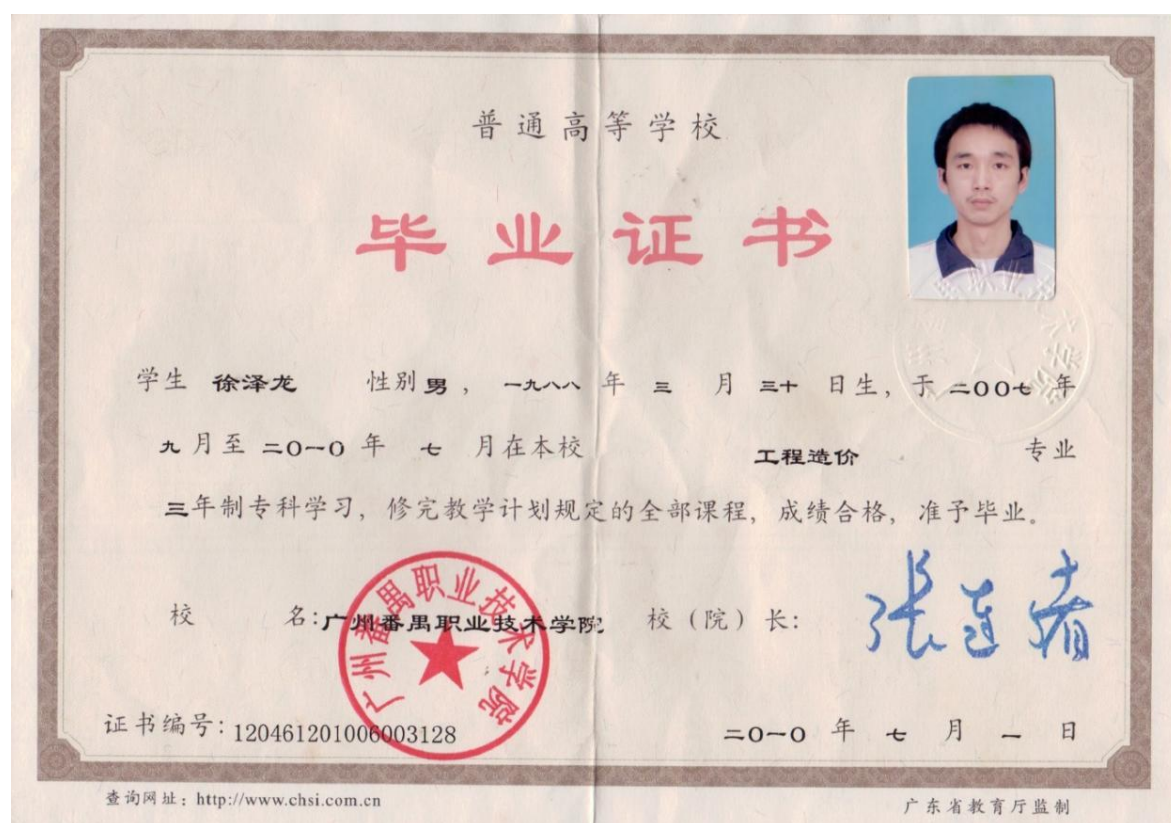 普通高等学校
毕业证书
学生 徐泽龙 性别 男， 一九八八 年 三 月 三十 日生，于 二00七 年
九 月至 二0一0 年 七 月在本校 工程造价 专业
三年制专科学习，修完教学计划规定的全部课程，成绩合格，准予毕业。
校 名：广州番禺职业技术学院 校（院）长：
广州番禺职业技术学院
证书编号：120461201006003128 二0一0 年 七 月 一 日
查询网址：http://www.chsi.com.cn 广东省教育厅监制